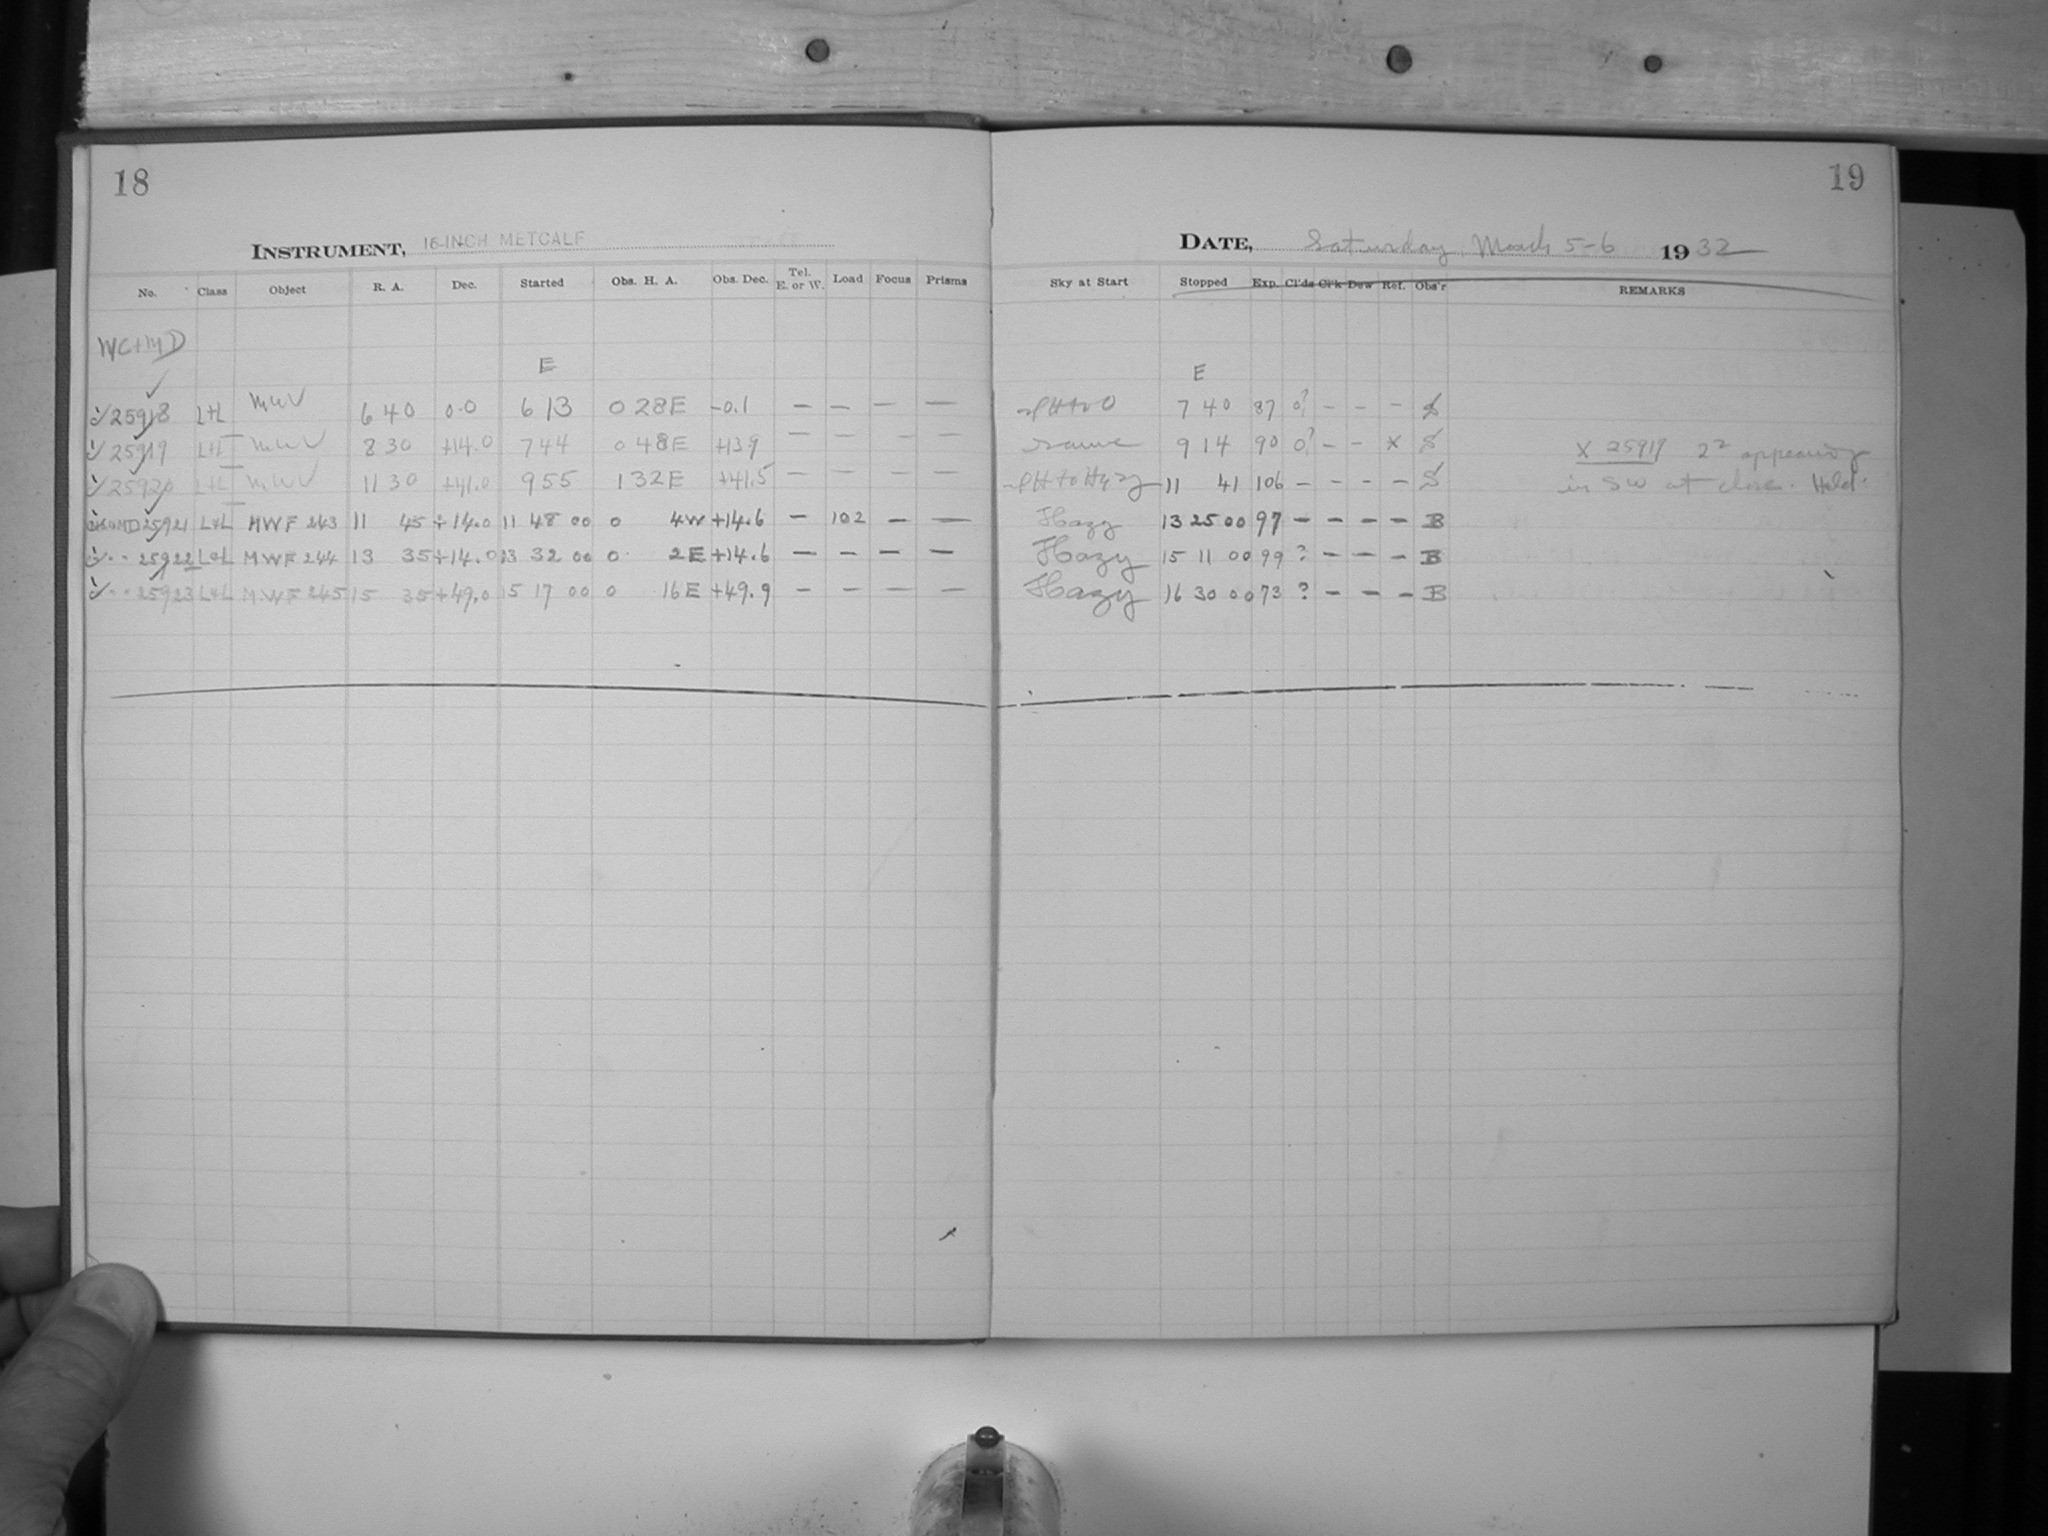 18
INSTRUMENT, 16-INCH METCALF
No. Class Object R. A. Dec. Started Obs. H. A. Obs. Dec. Tel. E. or W. Load Focus Prisms
MC+MD
E
25918 L+L MWV 6 40 0.0 6 13 0 28E -0.1 — — — —
25919 L+L MWV 8 30 +14.0 7 44 0 48E +13.9 — — — —
25920 L+L MWV 11 30 +41.0 9 55 1 32E +41.5 — — — —
25921 L+L MWF 243 11 45 +14.0 11 48 00 0 4W +14.6 — 102 — —
" " 25922 L+L MWF 244 13 35 +14.0 13 32 00 0 2E +14.6 — — — —
" " 25923 L+L MWF 245 15 35 +49.0 15 17 00 0 16E +49.9 — — — —
19
DATE, Saturday, March 5-6 1932
Sky at Start Stopped Exp. Cl'ds Cl'k Dew Ref. Obs'r REMARKS
E
7 40 87 0? - - - S
same 9 14 90 0? - - x S X 25919 2² appearing
11 41 106 - - - - S in SW at close. Held.
Hazy 13 25 00 97 - - - - B
Hazy 15 11 00 99 ? - - - B
Hazy 16 30 00 73 ? - - - B